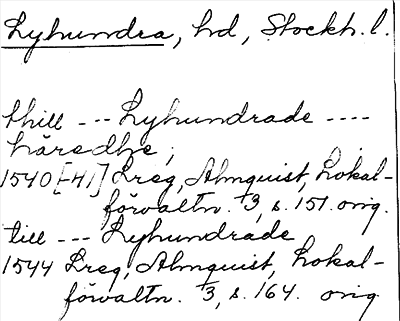 Lyhundra, hd, Stockh. l.
thill --- Lyhundrade ----
häredhe;
1540[-41] Lreg, Almquist, Lokal-
förvaltn. 3, s. 151. orig.
till --- Lyhundrade
1544 Lreg, Almquist, Lokal-
förvaltn. 3, s. 164. orig